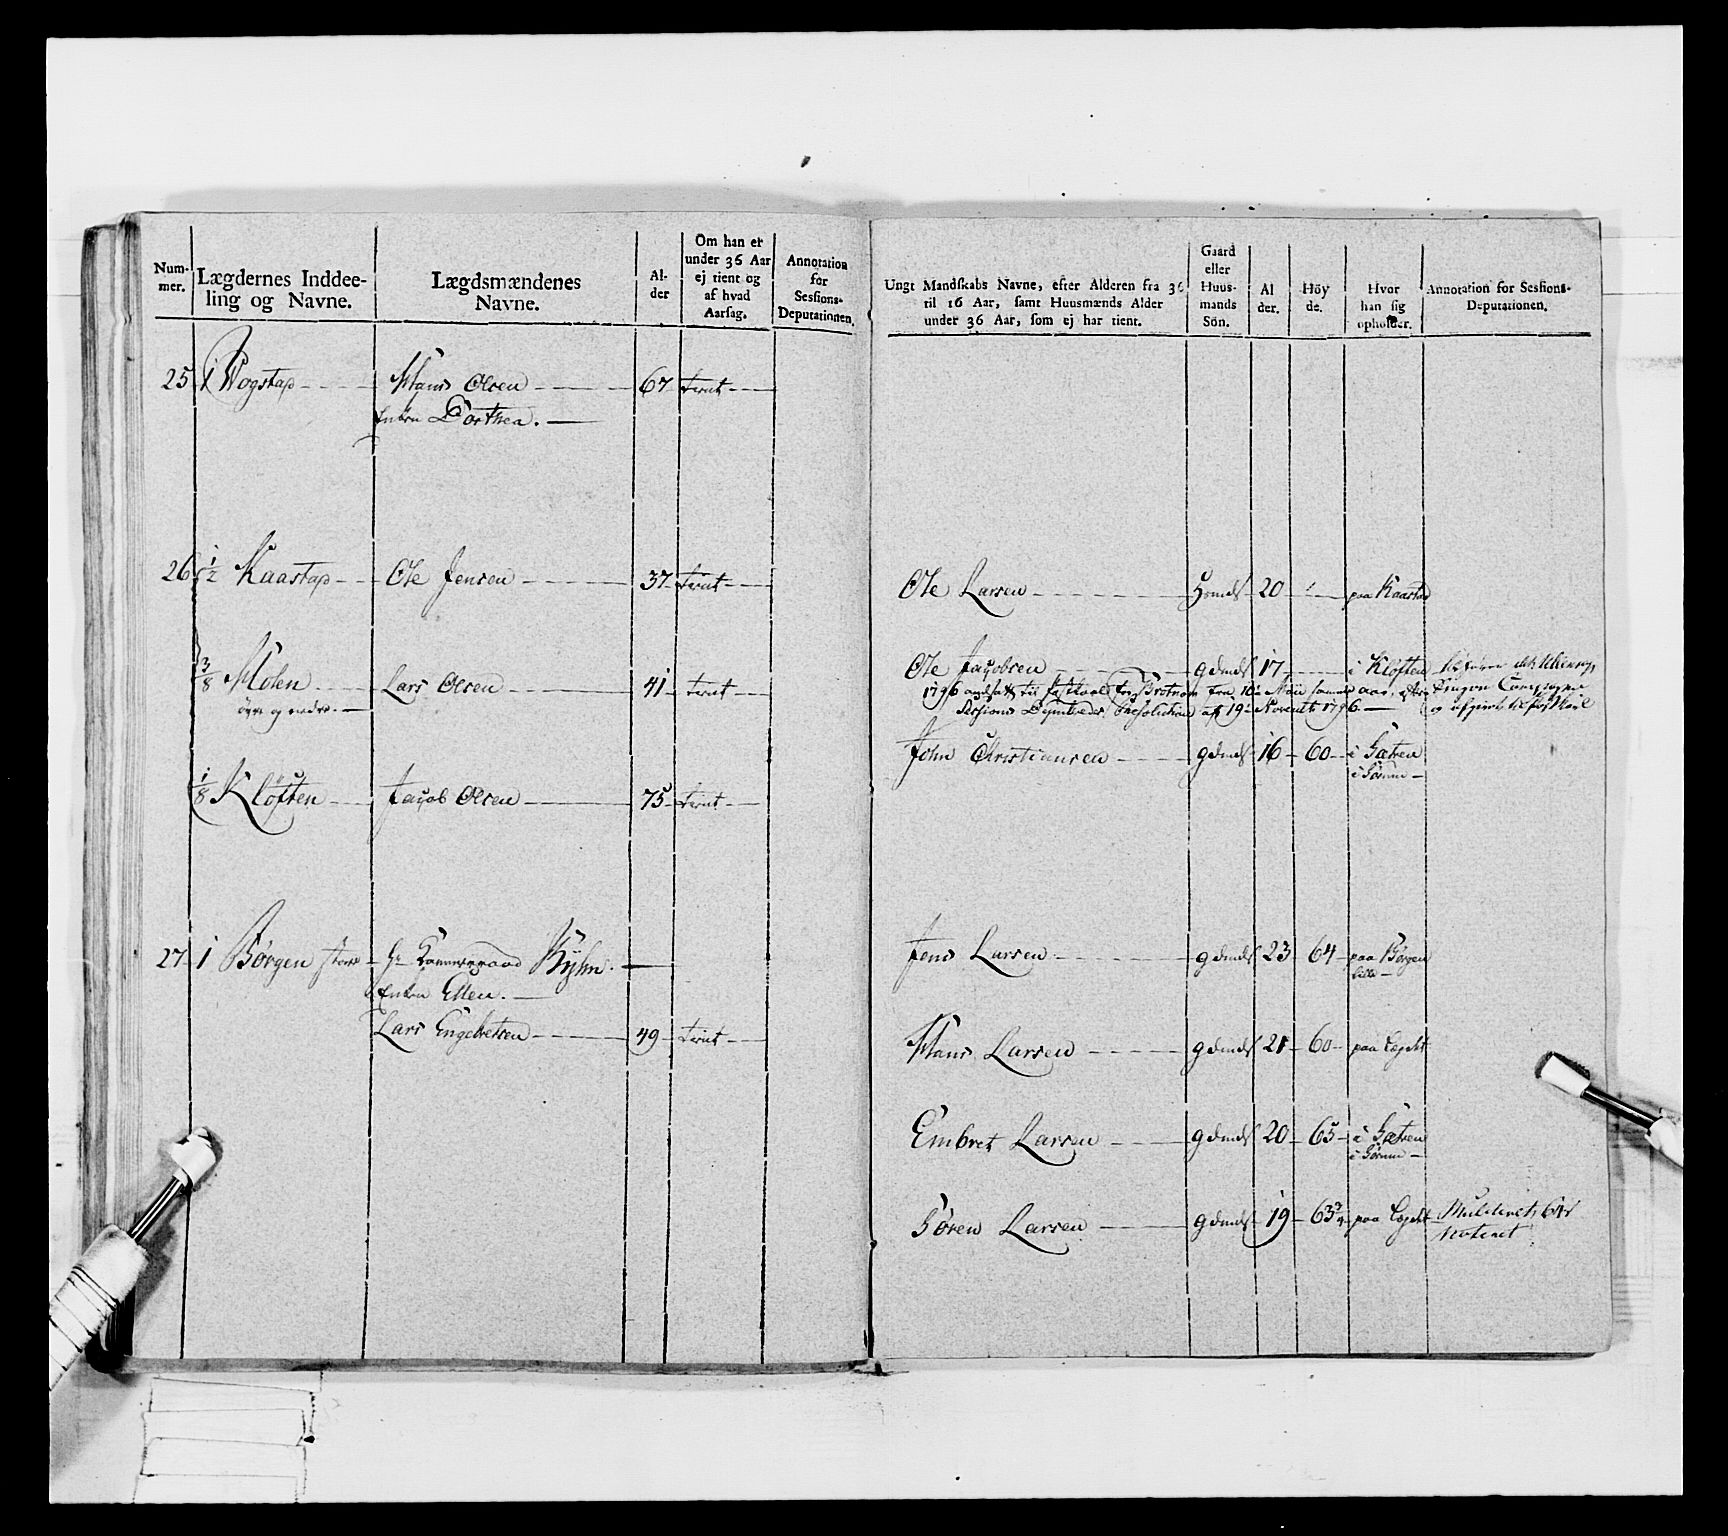 Num-
mer.
Lægdernes Inddee-
ling og Navne.
Lægdsmændenes
Navne.
Al-
der
Om han er
under 36 Aar
ej tient og
af hvad
Aarsag.
Annotation
for
Sessions-
Deputationen.
25 1 Wogstad Hans Olsen 67 tient
Enken Dorthea.
26 1/2 Kaastad Ole Jensen 37 tient
3/8 Molen Lars Olsen 41 tient
øvre og nedre.
1/8 Kløften Jacob Olsen 75 tient
27 1 Børgen store Hr Kammerraad Kyhn.
Enken Ellen.
Lars Engebretsen 49 tient
Ungt Mandskabs Navne, efter Alderen fra 36
til 16 Aar, samt Huusmænds Alder
under 36 Aar, som ej har tient.
Gaard
eller
Huus-
mands
Sön.
Al
der.
Höy
de.
Hvor
han sig
opholder.
Annotation for Sessions-
Deputationen.
Ole Larsen 20 paa Kaastad
Ole Jacobsen gdmds 17 i Kløften
1796 andsatt til for fra 10de Maii samme aar, efter
Sessions Resolution af 19de Novembr 1796
John Christiansen gdmds 16 60 i Sætren
i Sørum
Jens Larsen gdmds 23 64 paa Børgen
lille
Hans Larsen gdmds 21 60 paa Lægdet
Embret Larsen gdmds 20 65 i Sætren
i Sørum
Sören Larsen gdmds 19 63 3/4 paa Lægdet
Noteret